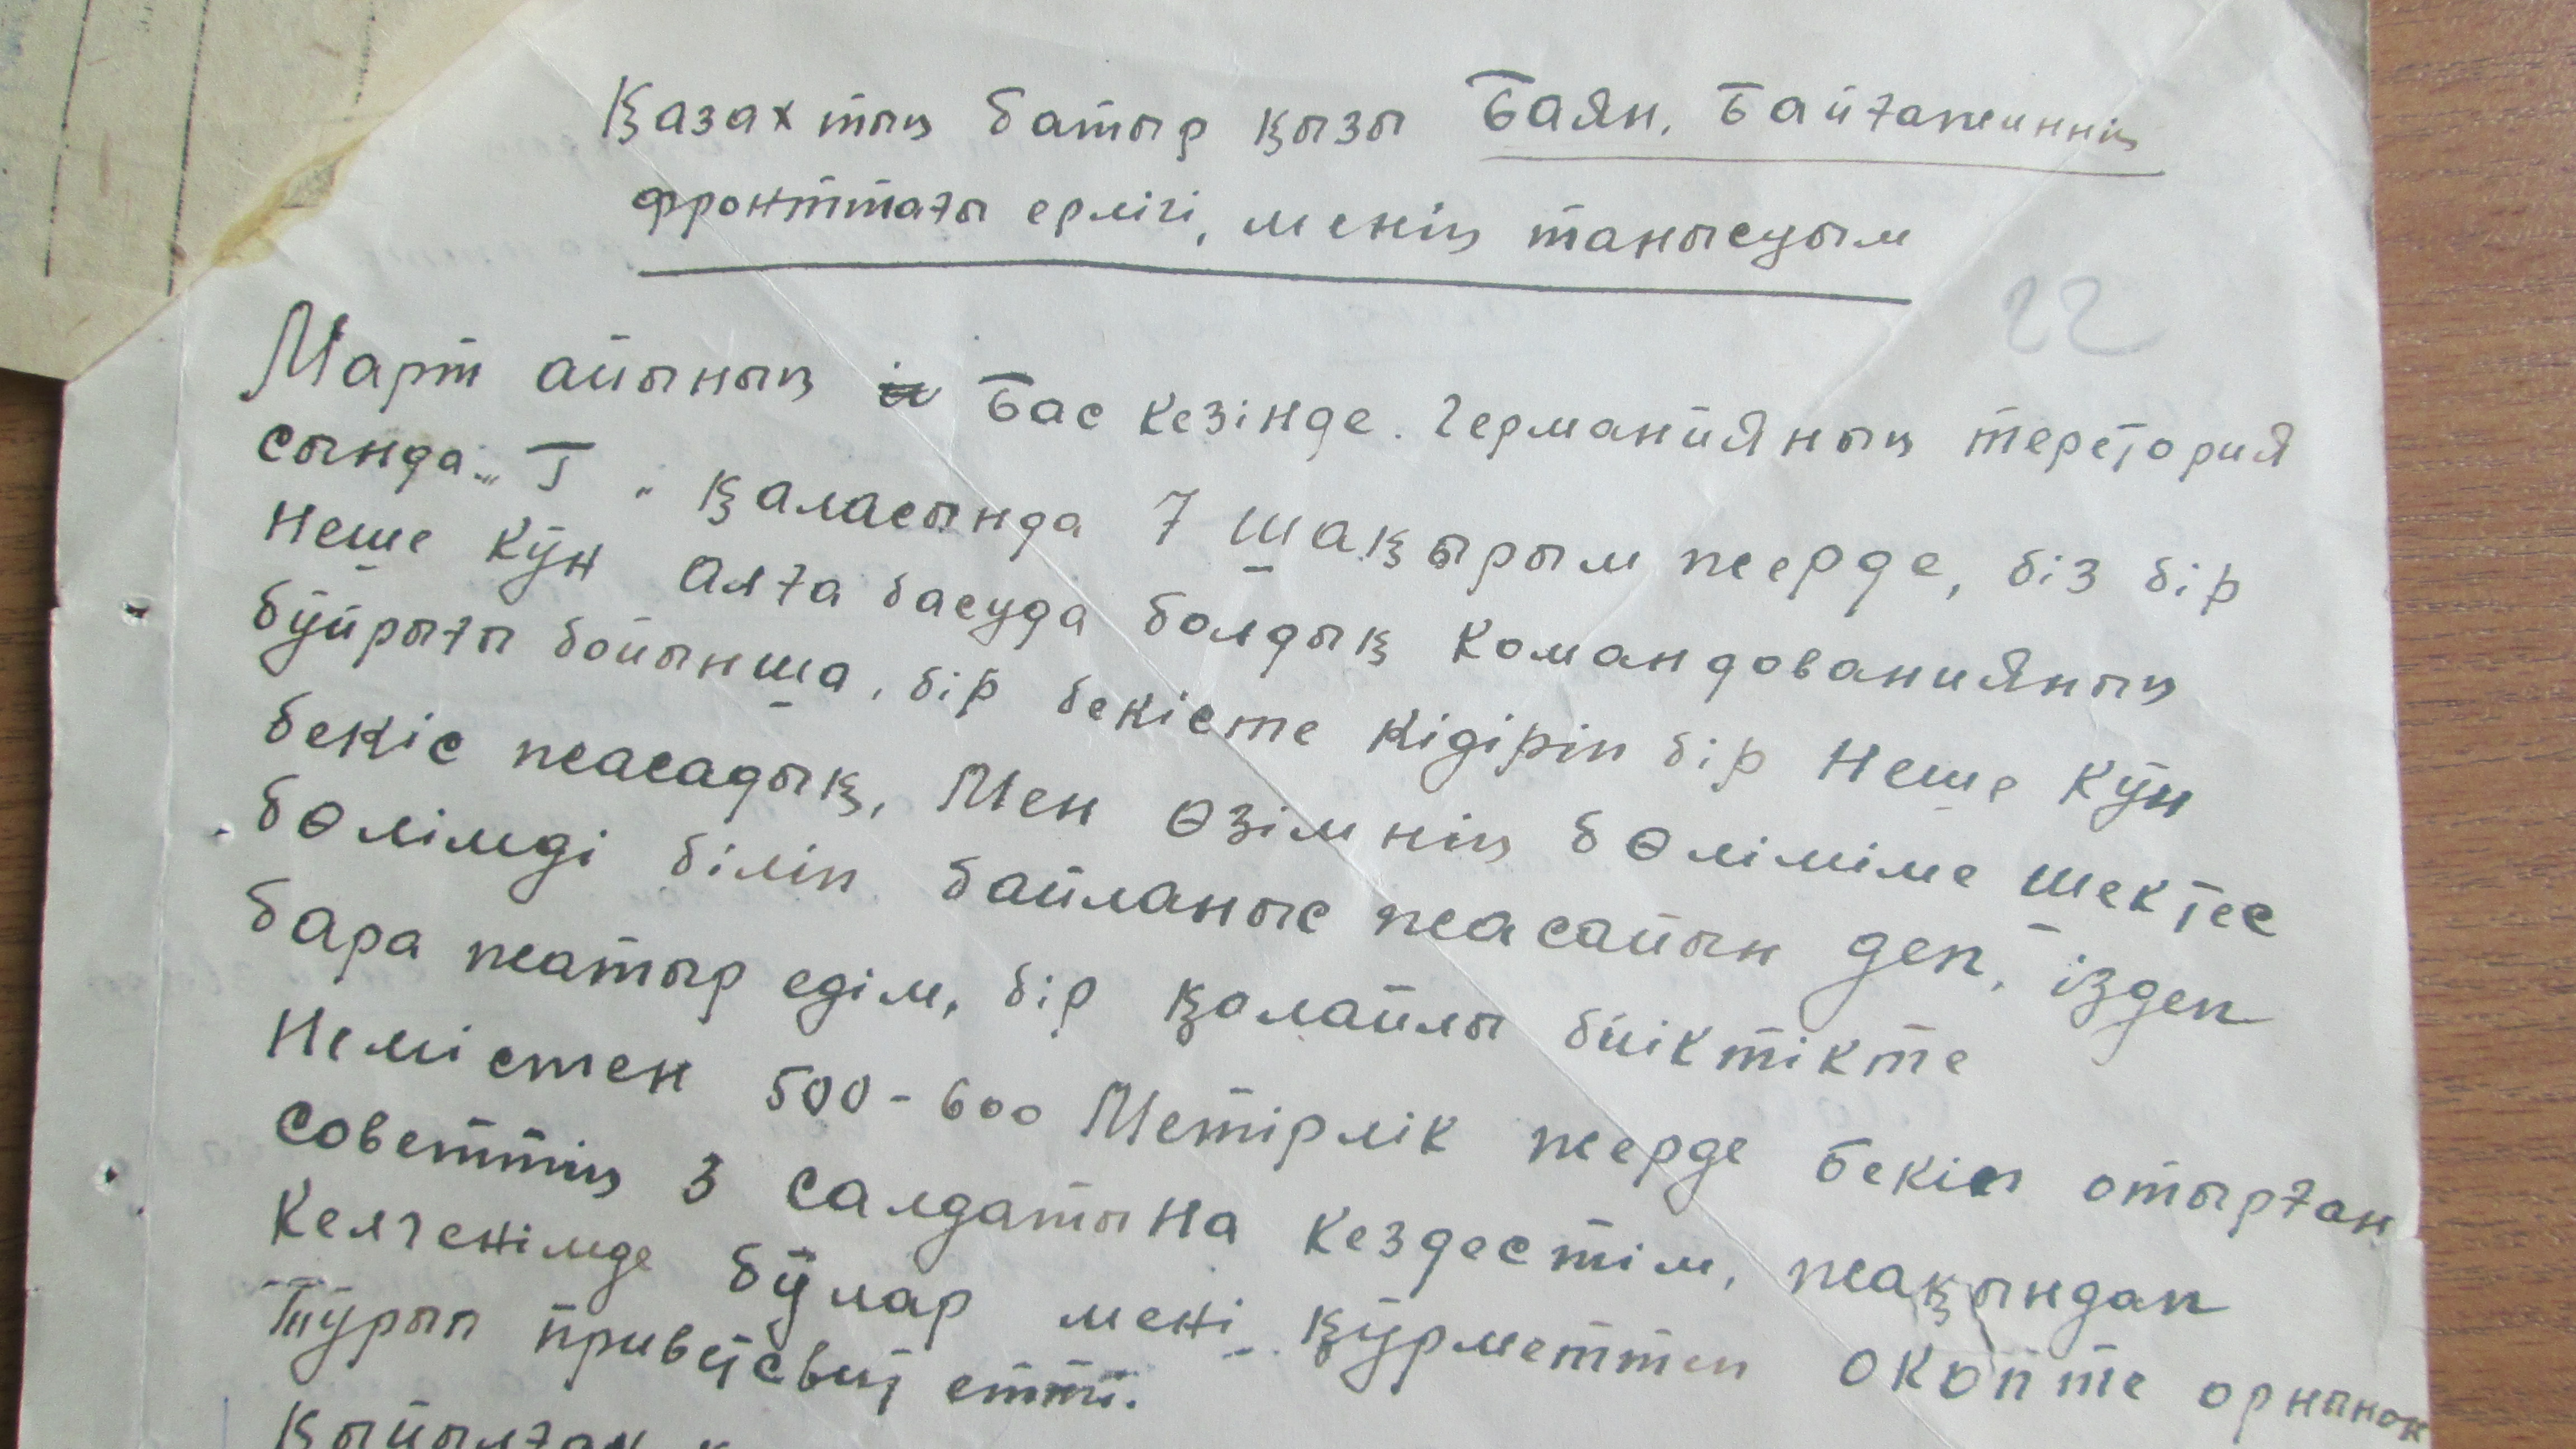 Қазахтың батыр қызы Баян. Байғажиннің
фронттағы ерлігі, менің танысуым
22
Март айының Бас кезінде. Германияның територия
сында „Т„ қаласында 7 шақырым жерде, біз бір
неше күн алға басуда болдық командованияның
бұйрығы бойынша, бір бекісте кідіріп бір неше күн
бекіс жасадық, Мен өзімнің бөліміме шектес
бөлімді біліп байланыс жасайын деп, іздеп
бара жатыр едім, бір қолайлы биіктікте
Немістен 500-600 Метірлік жерде бекіп отырған
советтің 3 салдатына кездестім, жақындап
келгенімде бұлар мені құрметтеп окопте орнынан
Тұрып приветсвит етті.